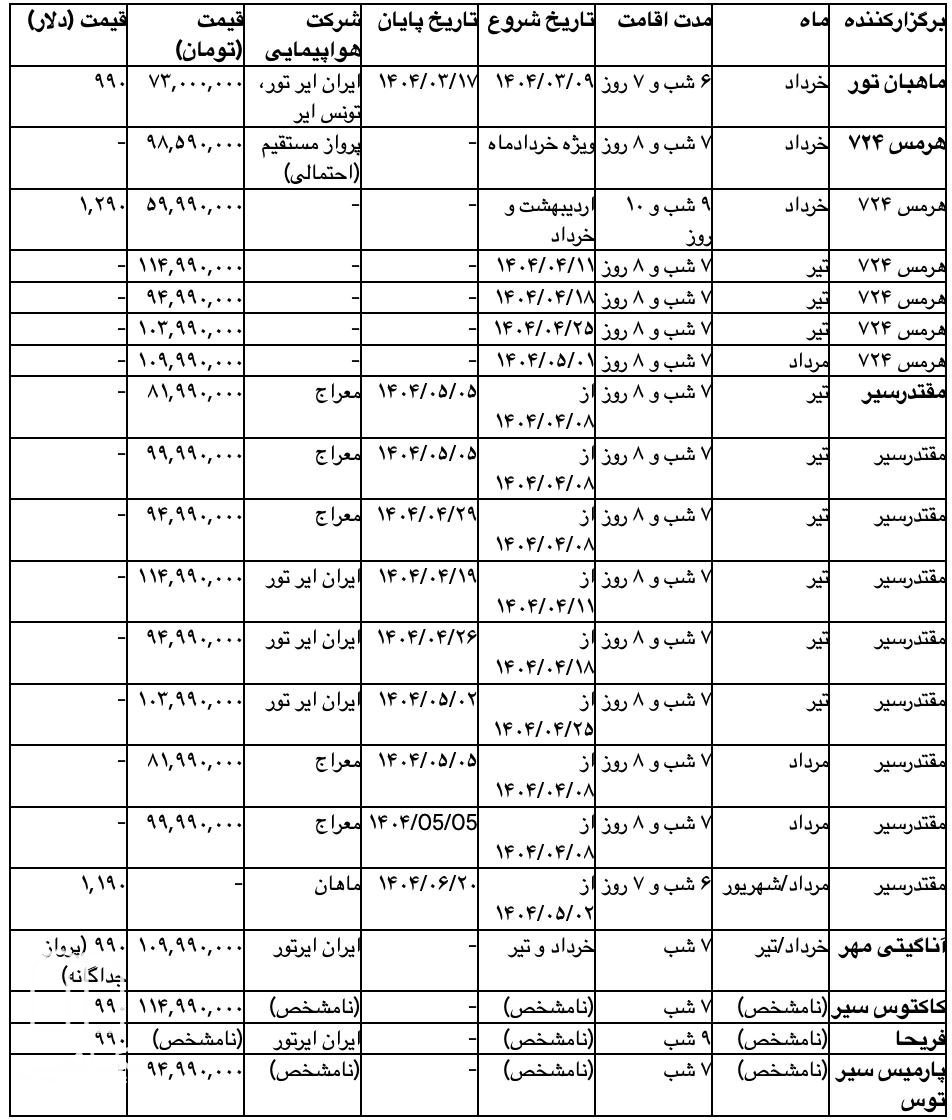 برگزارکننده ماه مدت اقامت تاریخ شروع تاریخ پایان شرکت هواپیمایی قیمت (تومان) قیمت (دلار)
ماهبان تور خرداد ۶ شب و ۷ روز ۱۴۰۴/۰۳/۰۹ ۱۴۰۴/۰۳/۱۷ ایران ایر تور، تونس ایر ۷۳,۰۰۰,۰۰۰ ۹۹۰
هرمس ۷۲۴ خرداد ۷ شب و ۸ روز ویژه خردادماه - پرواز مستقیم (احتمالی) ۹۸,۵۹۰,۰۰۰ -
هرمس ۷۲۴ خرداد ۹ شب و ۱۰ روز اردیبهشت و خرداد - - ۵۹,۹۹۰,۰۰۰ ۱,۲۹۰
هرمس ۷۲۴ تیر ۷ شب و ۸ روز ۱۴۰۴/۰۴/۱۱ - - ۱۱۴,۹۹۰,۰۰۰ -
هرمس ۷۲۴ تیر ۷ شب و ۸ روز ۱۴۰۴/۰۴/۱۸ - - ۹۴,۹۹۰,۰۰۰ -
هرمس ۷۲۴ تیر ۷ شب و ۸ روز ۱۴۰۴/۰۴/۲۵ - - ۱۰۳,۹۹۰,۰۰۰ -
هرمس ۷۲۴ مرداد ۷ شب و ۸ روز ۱۴۰۴/۰۵/۰۱ - - ۱۰۹,۹۹۰,۰۰۰ -
مقتدرسیر تیر ۷ شب و ۸ روز از ۱۴۰۴/۰۴/۰۸ ۱۴۰۴/۰۵/۰۵ معراج ۸۱,۹۹۰,۰۰۰ -
مقتدرسیر تیر ۷ شب و ۸ روز از ۱۴۰۴/۰۴/۰۸ ۱۴۰۴/۰۵/۰۵ معراج ۹۹,۹۹۰,۰۰۰ -
مقتدرسیر تیر ۷ شب و ۸ روز از ۱۴۰۴/۰۴/۰۸ ۱۴۰۴/۰۴/۲۹ معراج ۹۴,۹۹۰,۰۰۰ -
مقتدرسیر تیر ۷ شب و ۸ روز از ۱۴۰۴/۰۴/۱۱ ۱۴۰۴/۰۴/۱۹ ایران ایر تور ۱۱۴,۹۹۰,۰۰۰ -
مقتدرسیر تیر ۷ شب و ۸ روز از ۱۴۰۴/۰۴/۱۸ ۱۴۰۴/۰۴/۲۶ ایران ایر تور ۹۴,۹۹۰,۰۰۰ -
مقتدرسیر تیر ۷ شب و ۸ روز از ۱۴۰۴/۰۴/۲۵ ۱۴۰۴/۰۵/۰۲ ایران ایر تور ۱۰۳,۹۹۰,۰۰۰ -
مقتدرسیر مرداد ۷ شب و ۸ روز از ۱۴۰۴/۰۴/۰۸ ۱۴۰۴/۰۵/۰۵ معراج ۸۱,۹۹۰,۰۰۰ -
مقتدرسیر مرداد ۷ شب و ۸ روز از ۱۴۰۴/۰۴/۰۸ ۱۴۰۴/05/05 معراج ۹۹,۹۹۰,۰۰۰ -
مقتدرسیر مرداد/شهریور ۶ شب و ۷ روز از ۱۴۰۴/۰۵/۰۲ ۱۴۰۴/۰۶/۲۰ ماهان - ۱,۱۹۰
آناگیتی مهر خرداد/تیر ۷ شب خرداد و تیر - ایران ایرتور ۱۰۹,۹۹۰,۰۰۰ ۹۹۰ (پرواز جداگانه)
کاکتوس سیر (نامشخص) ۷ شب (نامشخص) - (نامشخص) ۱۱۴,۹۹۰,۰۰۰ ۹۹۰
فریحا (نامشخص) ۹ شب (نامشخص) - ایران ایرتور (نامشخص) ۹۹۰
پارمیس سیر توس (نامشخص) ۷ شب (نامشخص) - (نامشخص) ۹۴,۹۹۰,۰۰۰